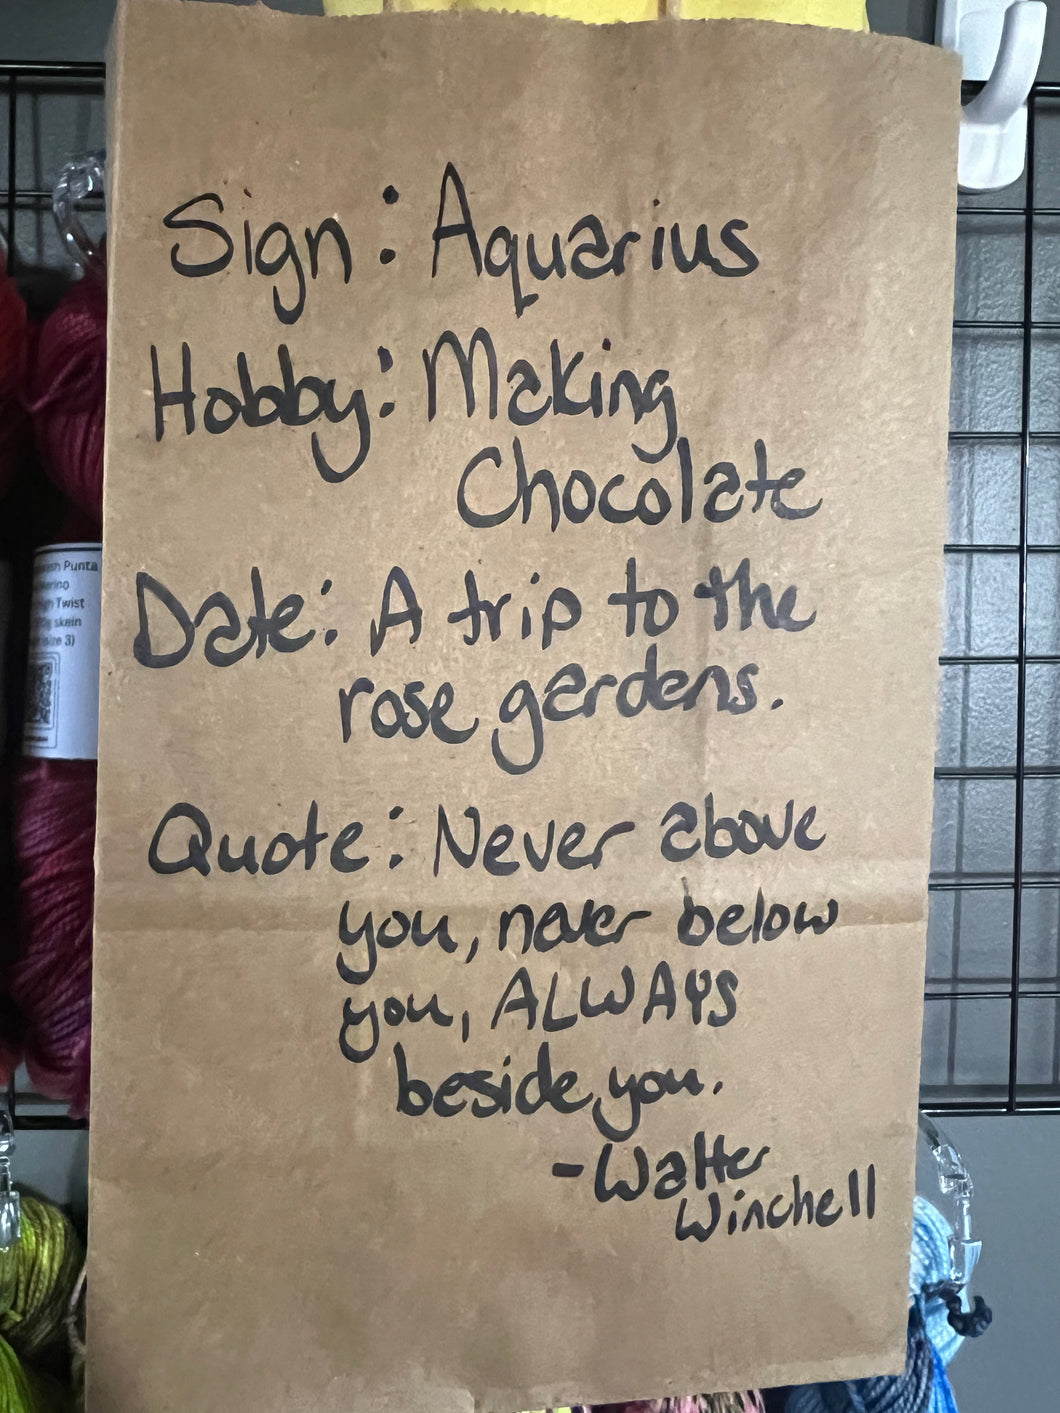 Sign: Aquarius
Hobby: Making
Chocolate
Date: A trip to the
rose gardens.
Quote: Never above
you, never below
you, ALWAYS
beside you.
-Walter
Winchell
Punta
Twist
skein
size 3)